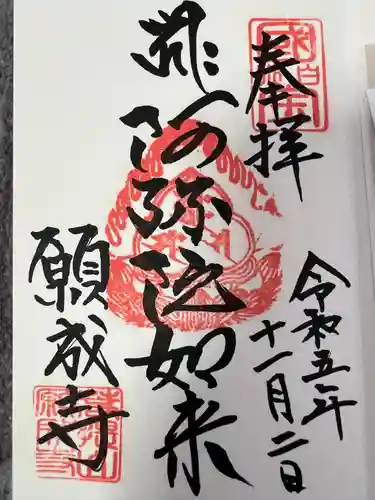 奉拝
令和五年
十一月二日
阿弥陀如来
願成寺